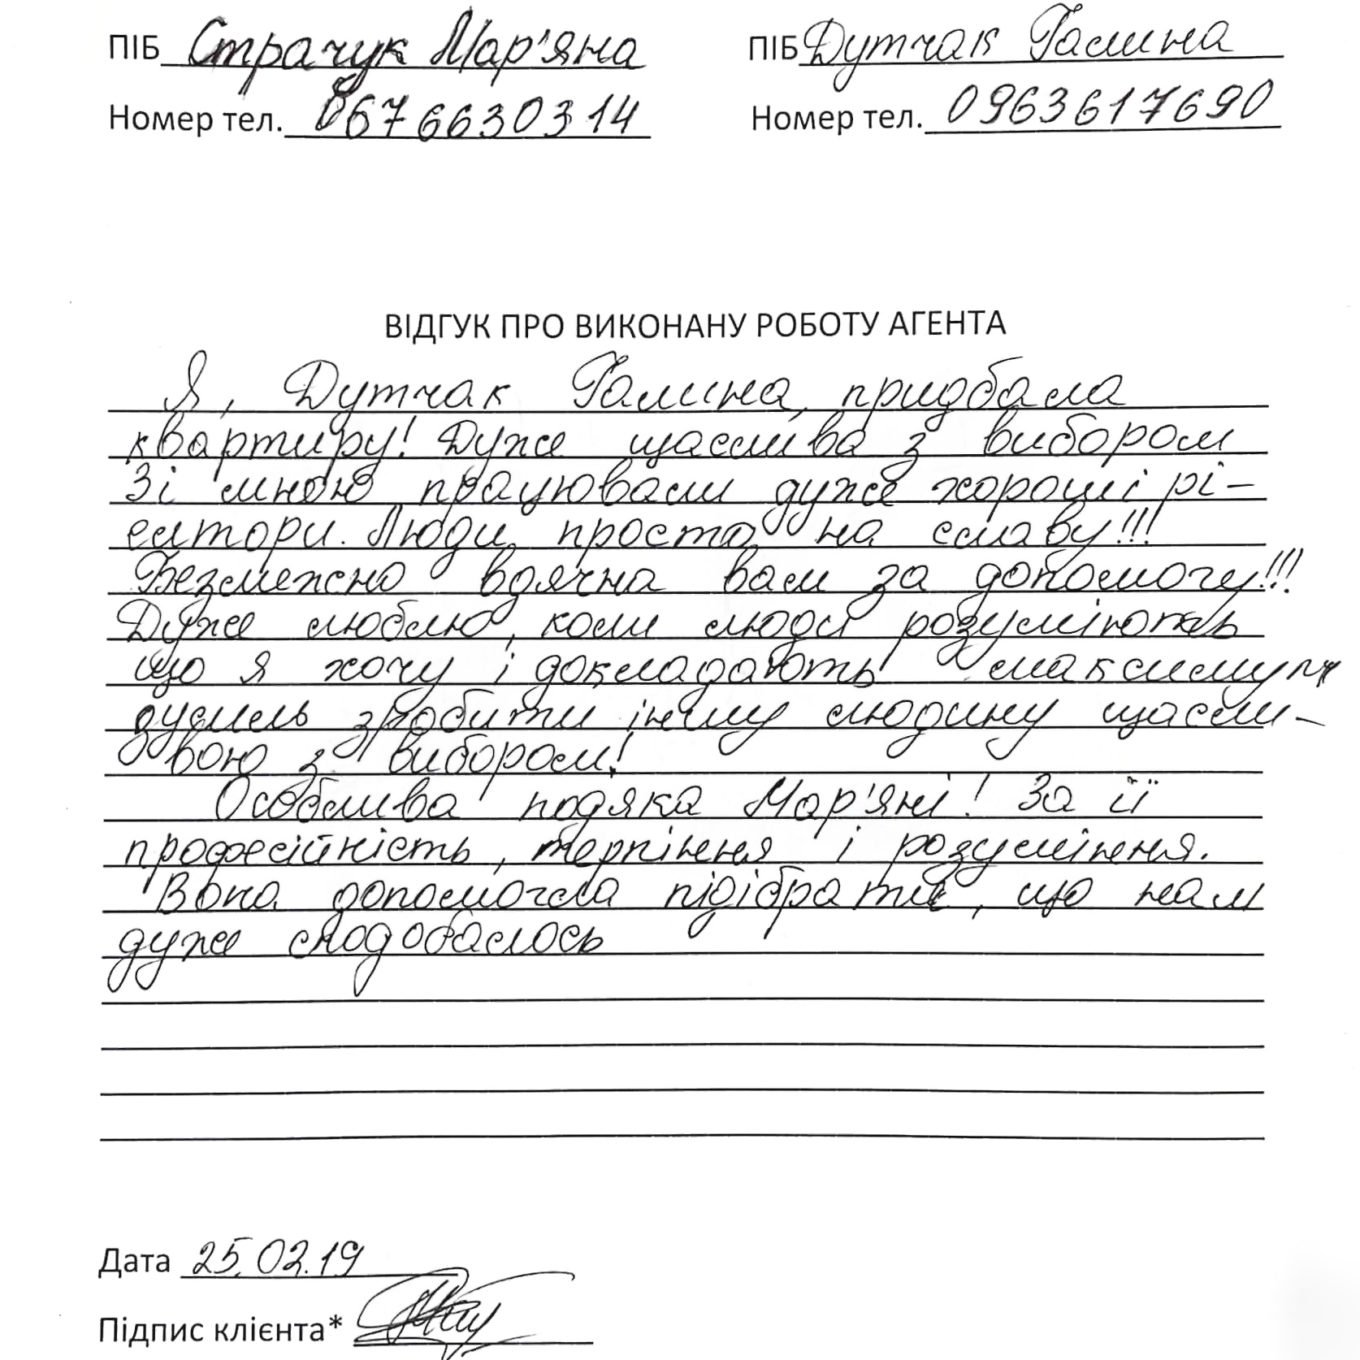 ПІБ Страчук Мар'яна ПІБ Дутчак Галина
Номер тел. 0676630314 Номер тел. 0963617690
ВІДГУК ПРО ВИКОНАНУ РОБОТУ АГЕНТА
Я, Дутчак Галина, придбала
квартиру! Дуже щаслива з вибором
Зі мною працювали дуже хороші рі-
елтори. Люди просто на славу!!!
Безмежно вдячна вам за допомогу!!!
Дуже люблю, коли люди розуміють
що я хочу і докладають максимум
зусиль зробити іншу людину щасли-
вою з вибором!
Особлива подяка Мар'яні! За її
професійність, терпіння і розуміння.
Вона допомогла підібрати, що нам
дуже сподобалось
Дата 25.02.19
Підпис клієнта*